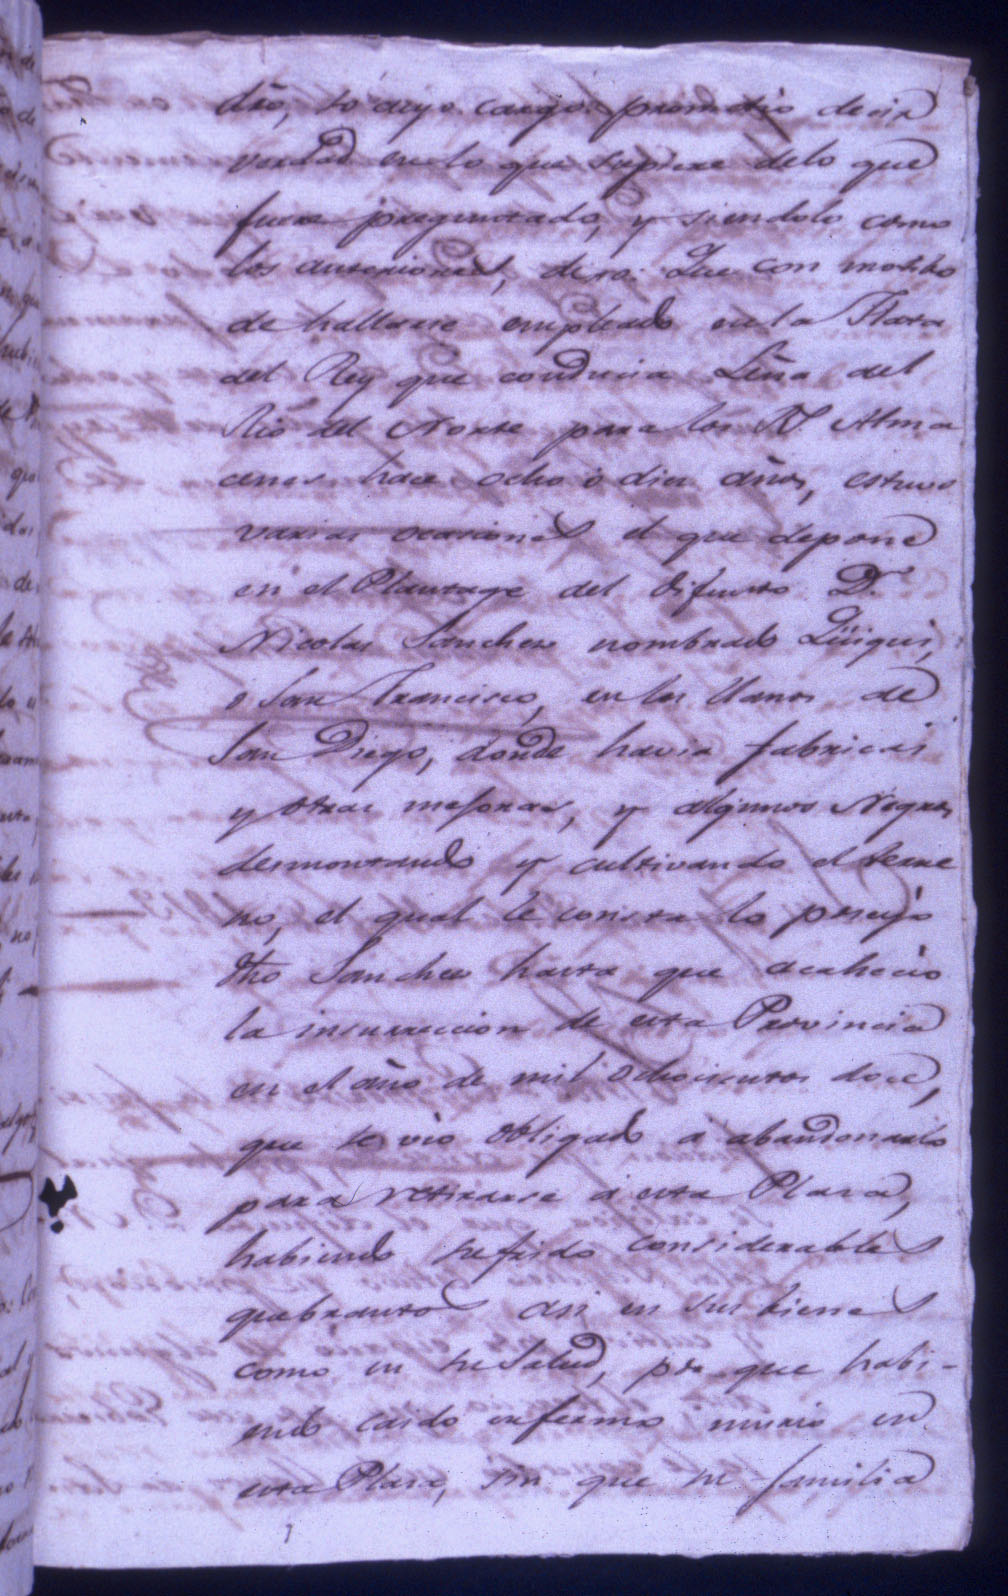 dro, so cuyo cargo prometio decir
verdad en lo que supiere delo que
fuere preguntado, y siendolo como
los anteriores, dixo: Que con motibo
de hallarse empleado en la Flata
del Rey que conducia Leña del
Rio del Norte para los R.s Alma
cenes hace ocho ó diez años, estuvo
varias ocasiones el que depone
en el Plantage del difunto D.n
Nicolas Sanchez nombrado Qüiqui,
o San Francisco, en los llanos de
San Diego, donde havia fabricas
y otras mejoras, y algunos Negros
desmontando y cultivando el terre
no, el qual le consta lo poseyó
dho Sanchez hasta que acahecio
la insurreccion de esta Provincia
en el año de mil ochocientos doce,
que se vio obligado á abandonarlo
para retirarse á esta Plaza,
habiendo sufrido considerables
quebrantos asi en sus bienes
como en su Salud, pr. que habi-
endo caido enfermo murio en
esta Plaza, sin que su familia